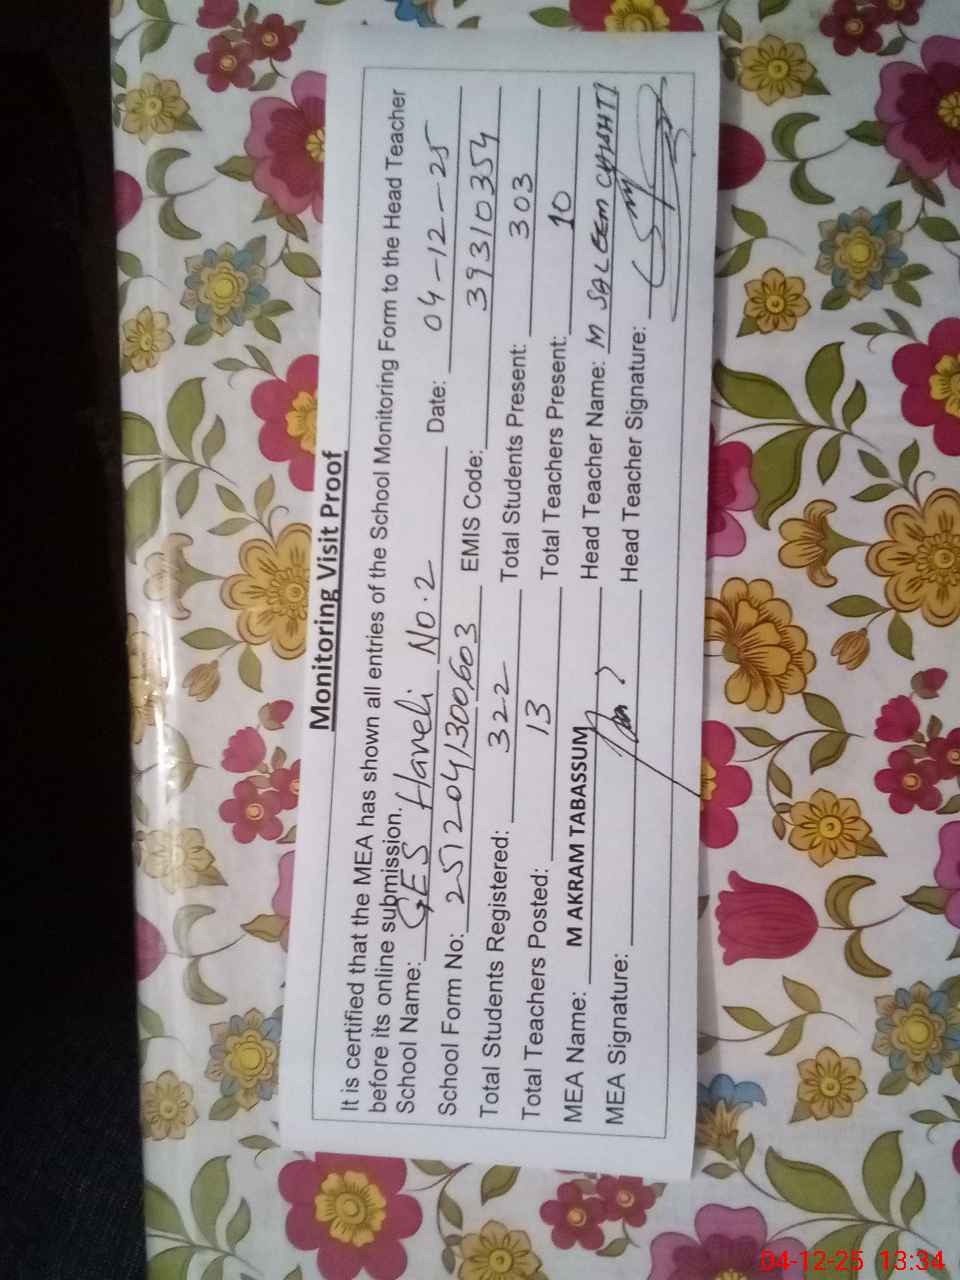 Monitoring Visit Proof
It is certified that the MEA has shown all entries of the School Monitoring Form to the Head Teacher
before its online submission.
School Name: GES Haveli No.2 Date: 04-12-25
School Form No: 2512041300603 EMIS Code: 39310354
Total Students Registered: 322 Total Students Present: 303
Total Teachers Posted: 13 Total Teachers Present: 10
MEA Name: M AKRAM TABASSUM Head Teacher Name: M SALEEM CHISHTI
MEA Signature: Head Teacher Signature:
04-12-25 13:34